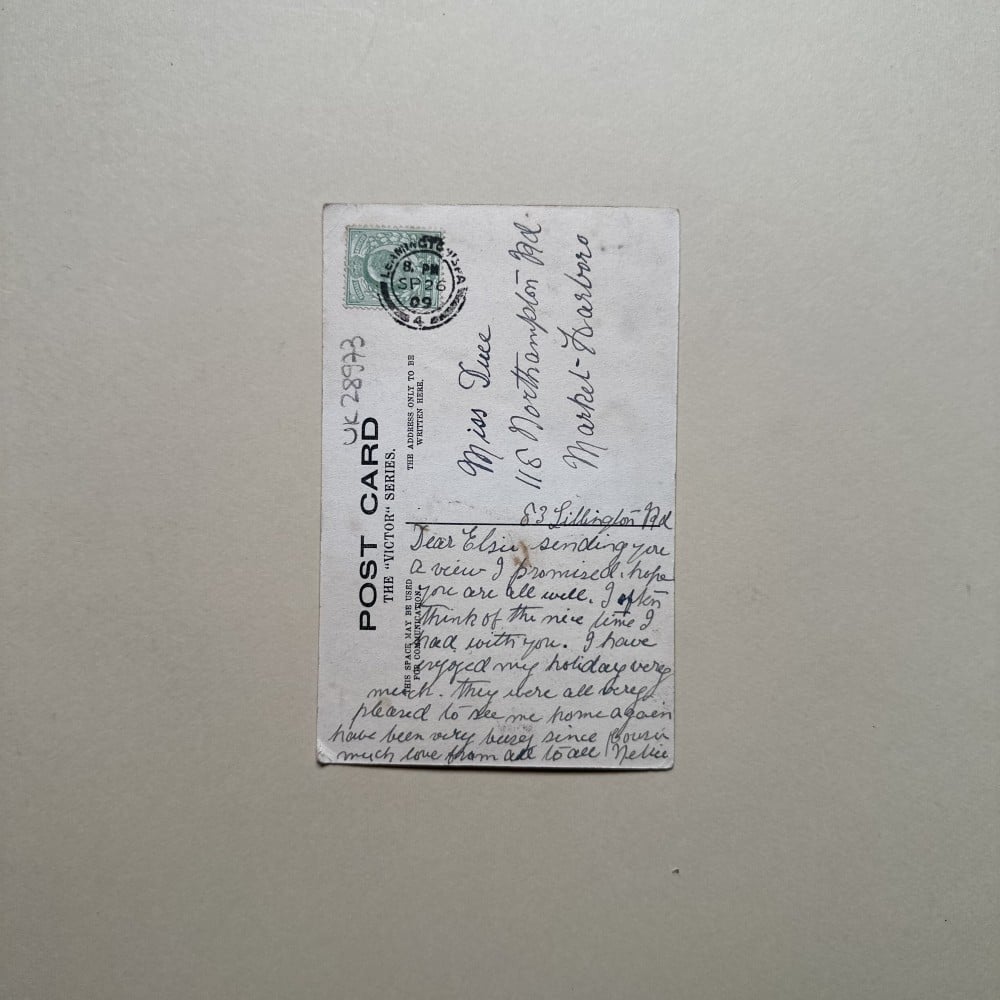 POST CARD
THE "VICTOR" SERIES.
THIS SPACE MAY BE USED
FOR COMMUNICATION.
THE ADDRESS ONLY TO BE
WRITTEN HERE.
UK 28973
LEAMINGTON SPA
8. PM
SP 26
09
4
Miss Duce
118 Northampton Rd
Market-Harboro
83 Lillington Rd
Dear Elsie sending you
a view I promised. hope
you are all well. I often
think of the nice time I
had with you. I have
enjoyed my holiday very
much. they were all very
pleased to see me home again
have been very busy since Cousin
much love from all to all Nellie